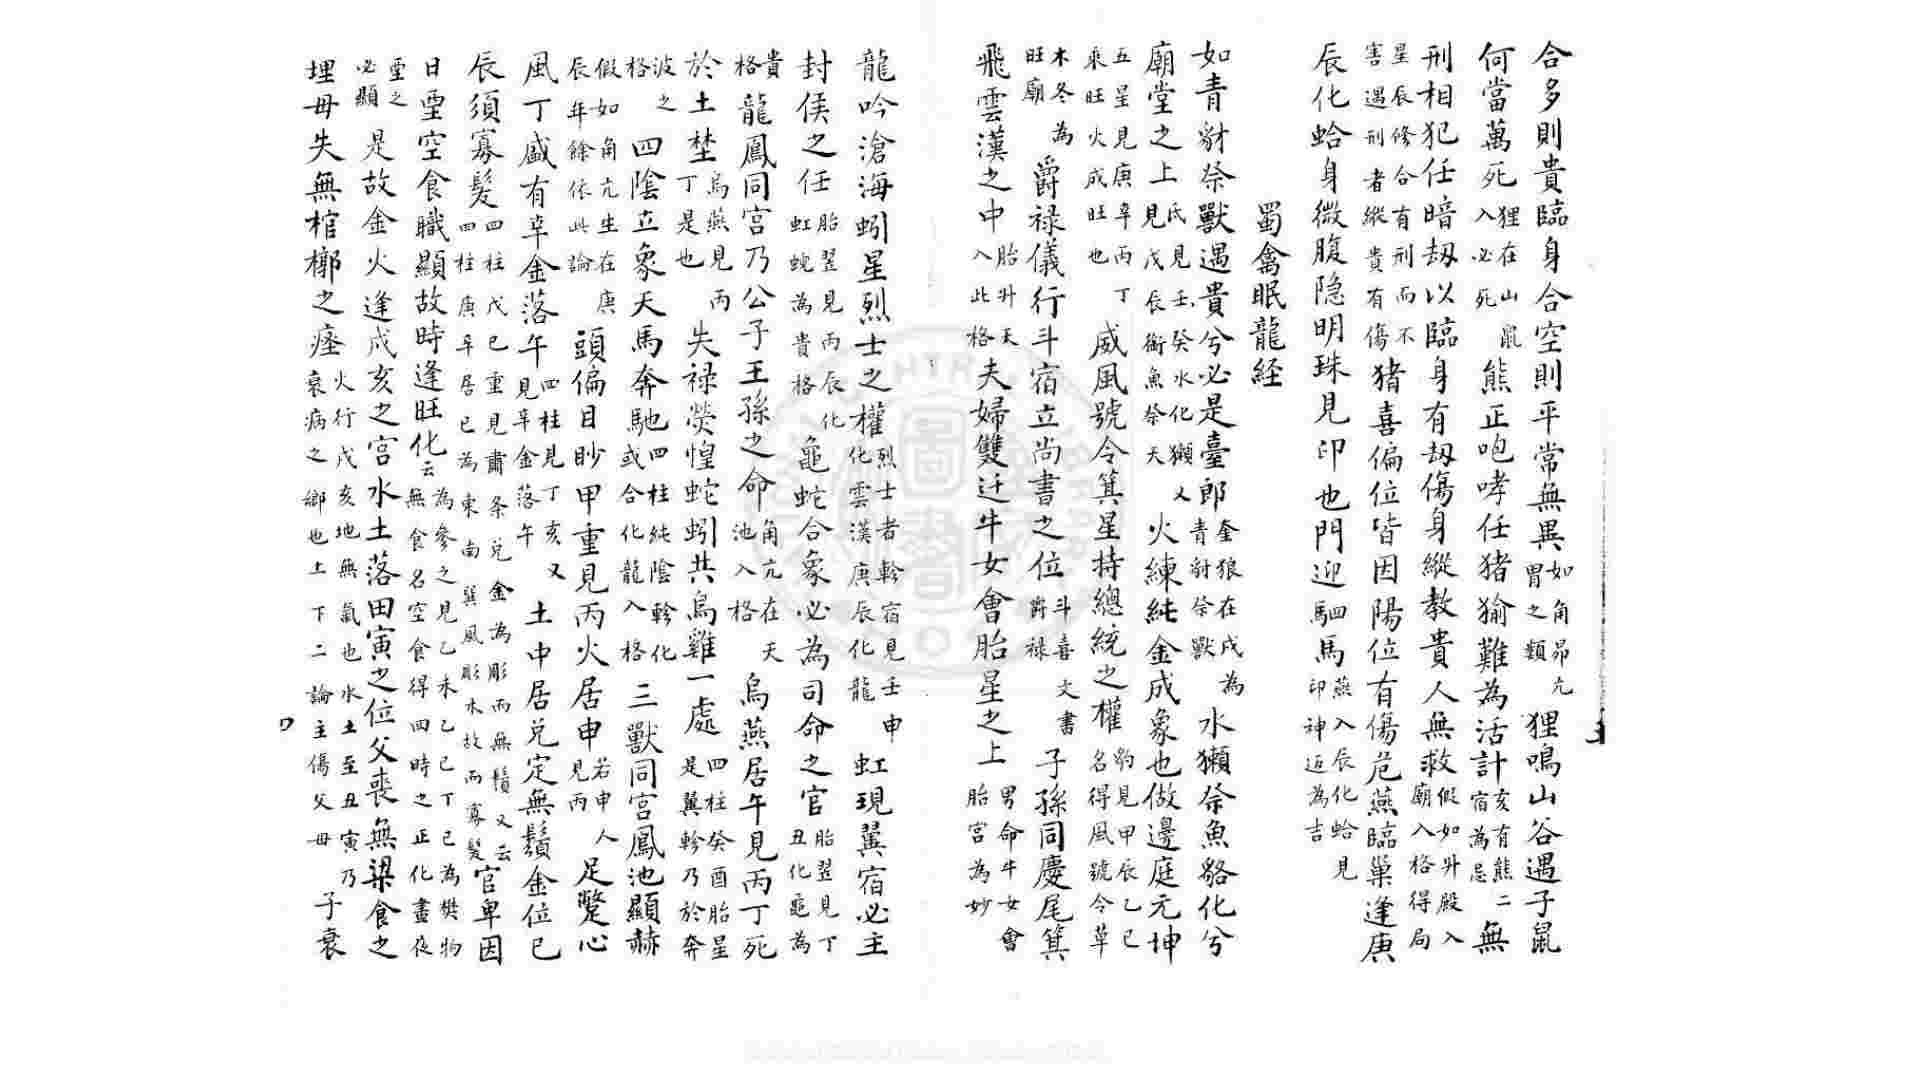 合多則貴臨身合空則平常無異如角昴亢胃之類狸鳴山谷遇子鼠
何當萬死狸在山鼠入必死熊正咆哮任猪猯難為活計亥有熊二宿為忌無
刑相犯任暗刼以臨身有刼傷身縱教貴人無救假如升殿入廟入格得局
星辰修合有刑而不害遇刑者縱貴有傷猪喜偏位皆因陽位有傷危燕臨巢逢庚
辰化蛤身微腹隐明珠見印也門迎駟馬燕入辰化蛤見印神迈為吉
蜀禽眠龍経
如青豺祭獸遇貴兮必是臺郎奎狼在戌為青豺祭獸水獺祭魚貉化兮
廟堂之上氐見壬癸水化獺又見戊辰銜魚祭天火練純金成象也做邊庭元坤
五星見庚辛丙丁乘旺火成旺也威風號令箕星持總統之權豹見甲辰乙巳名得風號令草
木冬為旺廟爵禄儀行斗宿立尚書之位斗喜文書爵禄子孫同慶尾箕
飛雲漢之中胎升天入此格夫婦雙迁牛女會胎星之上男命牛女會胎宮為妙
龍吟滄海蚓星烈士之權烈士者軫宿見壬申化雲漢庚辰化龍虹現翼宿必主
封侯之任胎翌見丙辰化虹蜺為貴格龜蛇合象必為司命之官胎翌見丁丑化龜為
貴格龍鳳同宮乃公子王孫之命角亢在天池入格烏燕居午見丙丁死
於土埜烏燕見丙丁是也失禄熒惶蛇蚓共烏雞一處四柱癸酉胎星是翼軫乃於奔
波之格四陰立象天馬奔馳四柱純陰軫化或合化龍入格三獸同宮鳳池顯赫
假如角亢生在庚辰年餘依此論頭偏目眇甲重見丙火居申若申人見丙足蹩心
風丁盛有辛金落午四柱見丁亥又見辛金落午土中居兑定無鬚金位巳
辰須寡髮四柱戊己重見肅条兑金為彫而無鬚又云四柱庚辛居巳為東南巽風彫木故而寡髮官卑因
日坙空食職顯故時逢旺化云為參之見乙未乙巳丁巳為樊物無食名空食得四時之正化晝夜
坙之必顯是故金火逢戌亥之宮水土落田寅之位父喪無梁食之
埋母失無棺槨之瘗火行戌亥地無氣也水土至丑寅乃衰病之鄉也上下二論主傷父母子衰